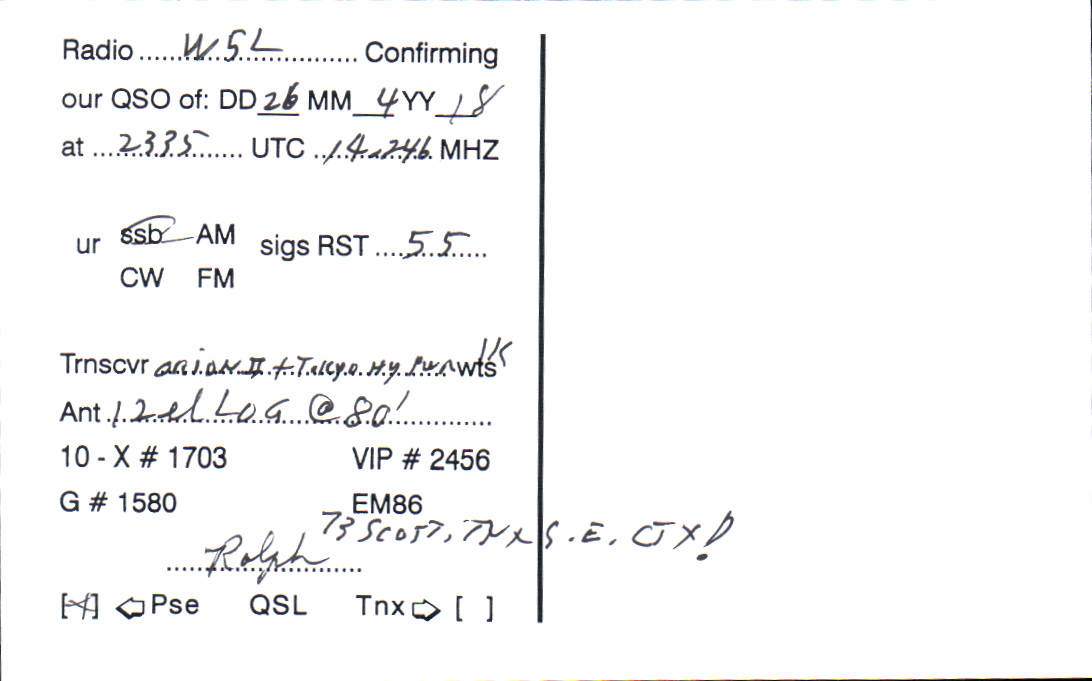 Radio W5L Confirming
our QSO of: DD 26 MM 4 YY 18
at 2335 UTC 14.246 MHZ
ur ssb AM sigs RST 55
CW FM
Trnscvr orion II + Tokyo Hy Pwr 1K wts
Ant 12 el LOG @ 80'
10 - X # 1703 VIP # 2456
G # 1580 EM86
73 SCOTT, TNX S.E.
Ralph
[X] ⇦ Pse QSL Tnx ⇨ [ ]